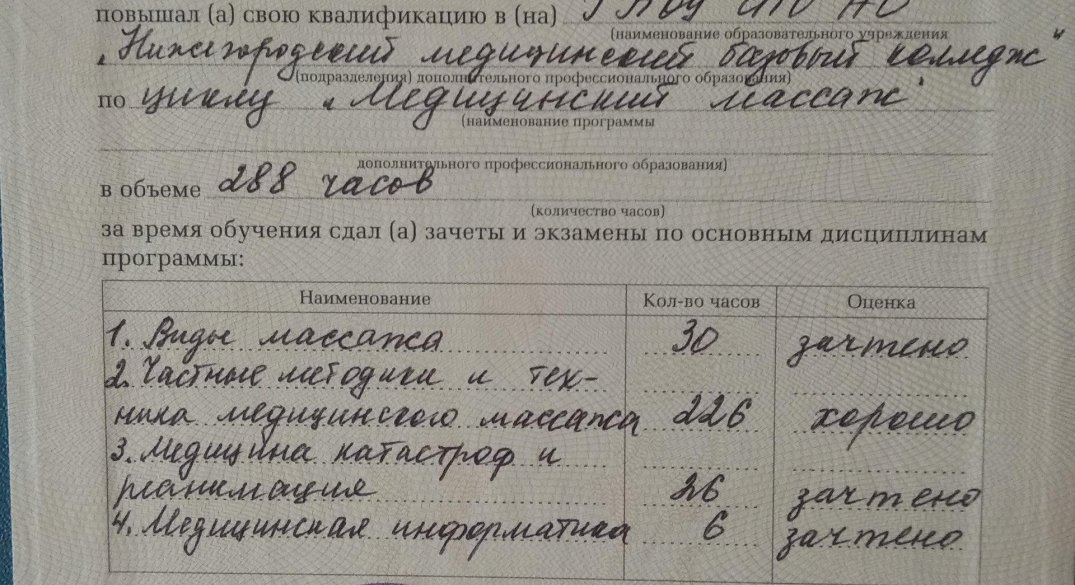 повышал (а) свою квалификацию в (на) ГБОУ СПО НО
(наименование образовательного учреждения
"Нижегородский медицинский базовый колледж"
(подразделения) дополнительного профессионального образования)
по циклу "Медицинский массаж"
(наименование программы
дополнительного профессионального образования)
в объеме 288 часов
(количество часов)
за время обучения сдал (а) зачеты и экзамены по основным дисциплинам
программы:
Наименование Кол-во часов Оценка
1. Виды массажа 30 зачтено
2. Частные методики и тех-
ника медицинского массажа 226 хорошо
3. Медицина катастроф и
реанимация 26 зачтено
4. Медицинская информатика 6 зачтено